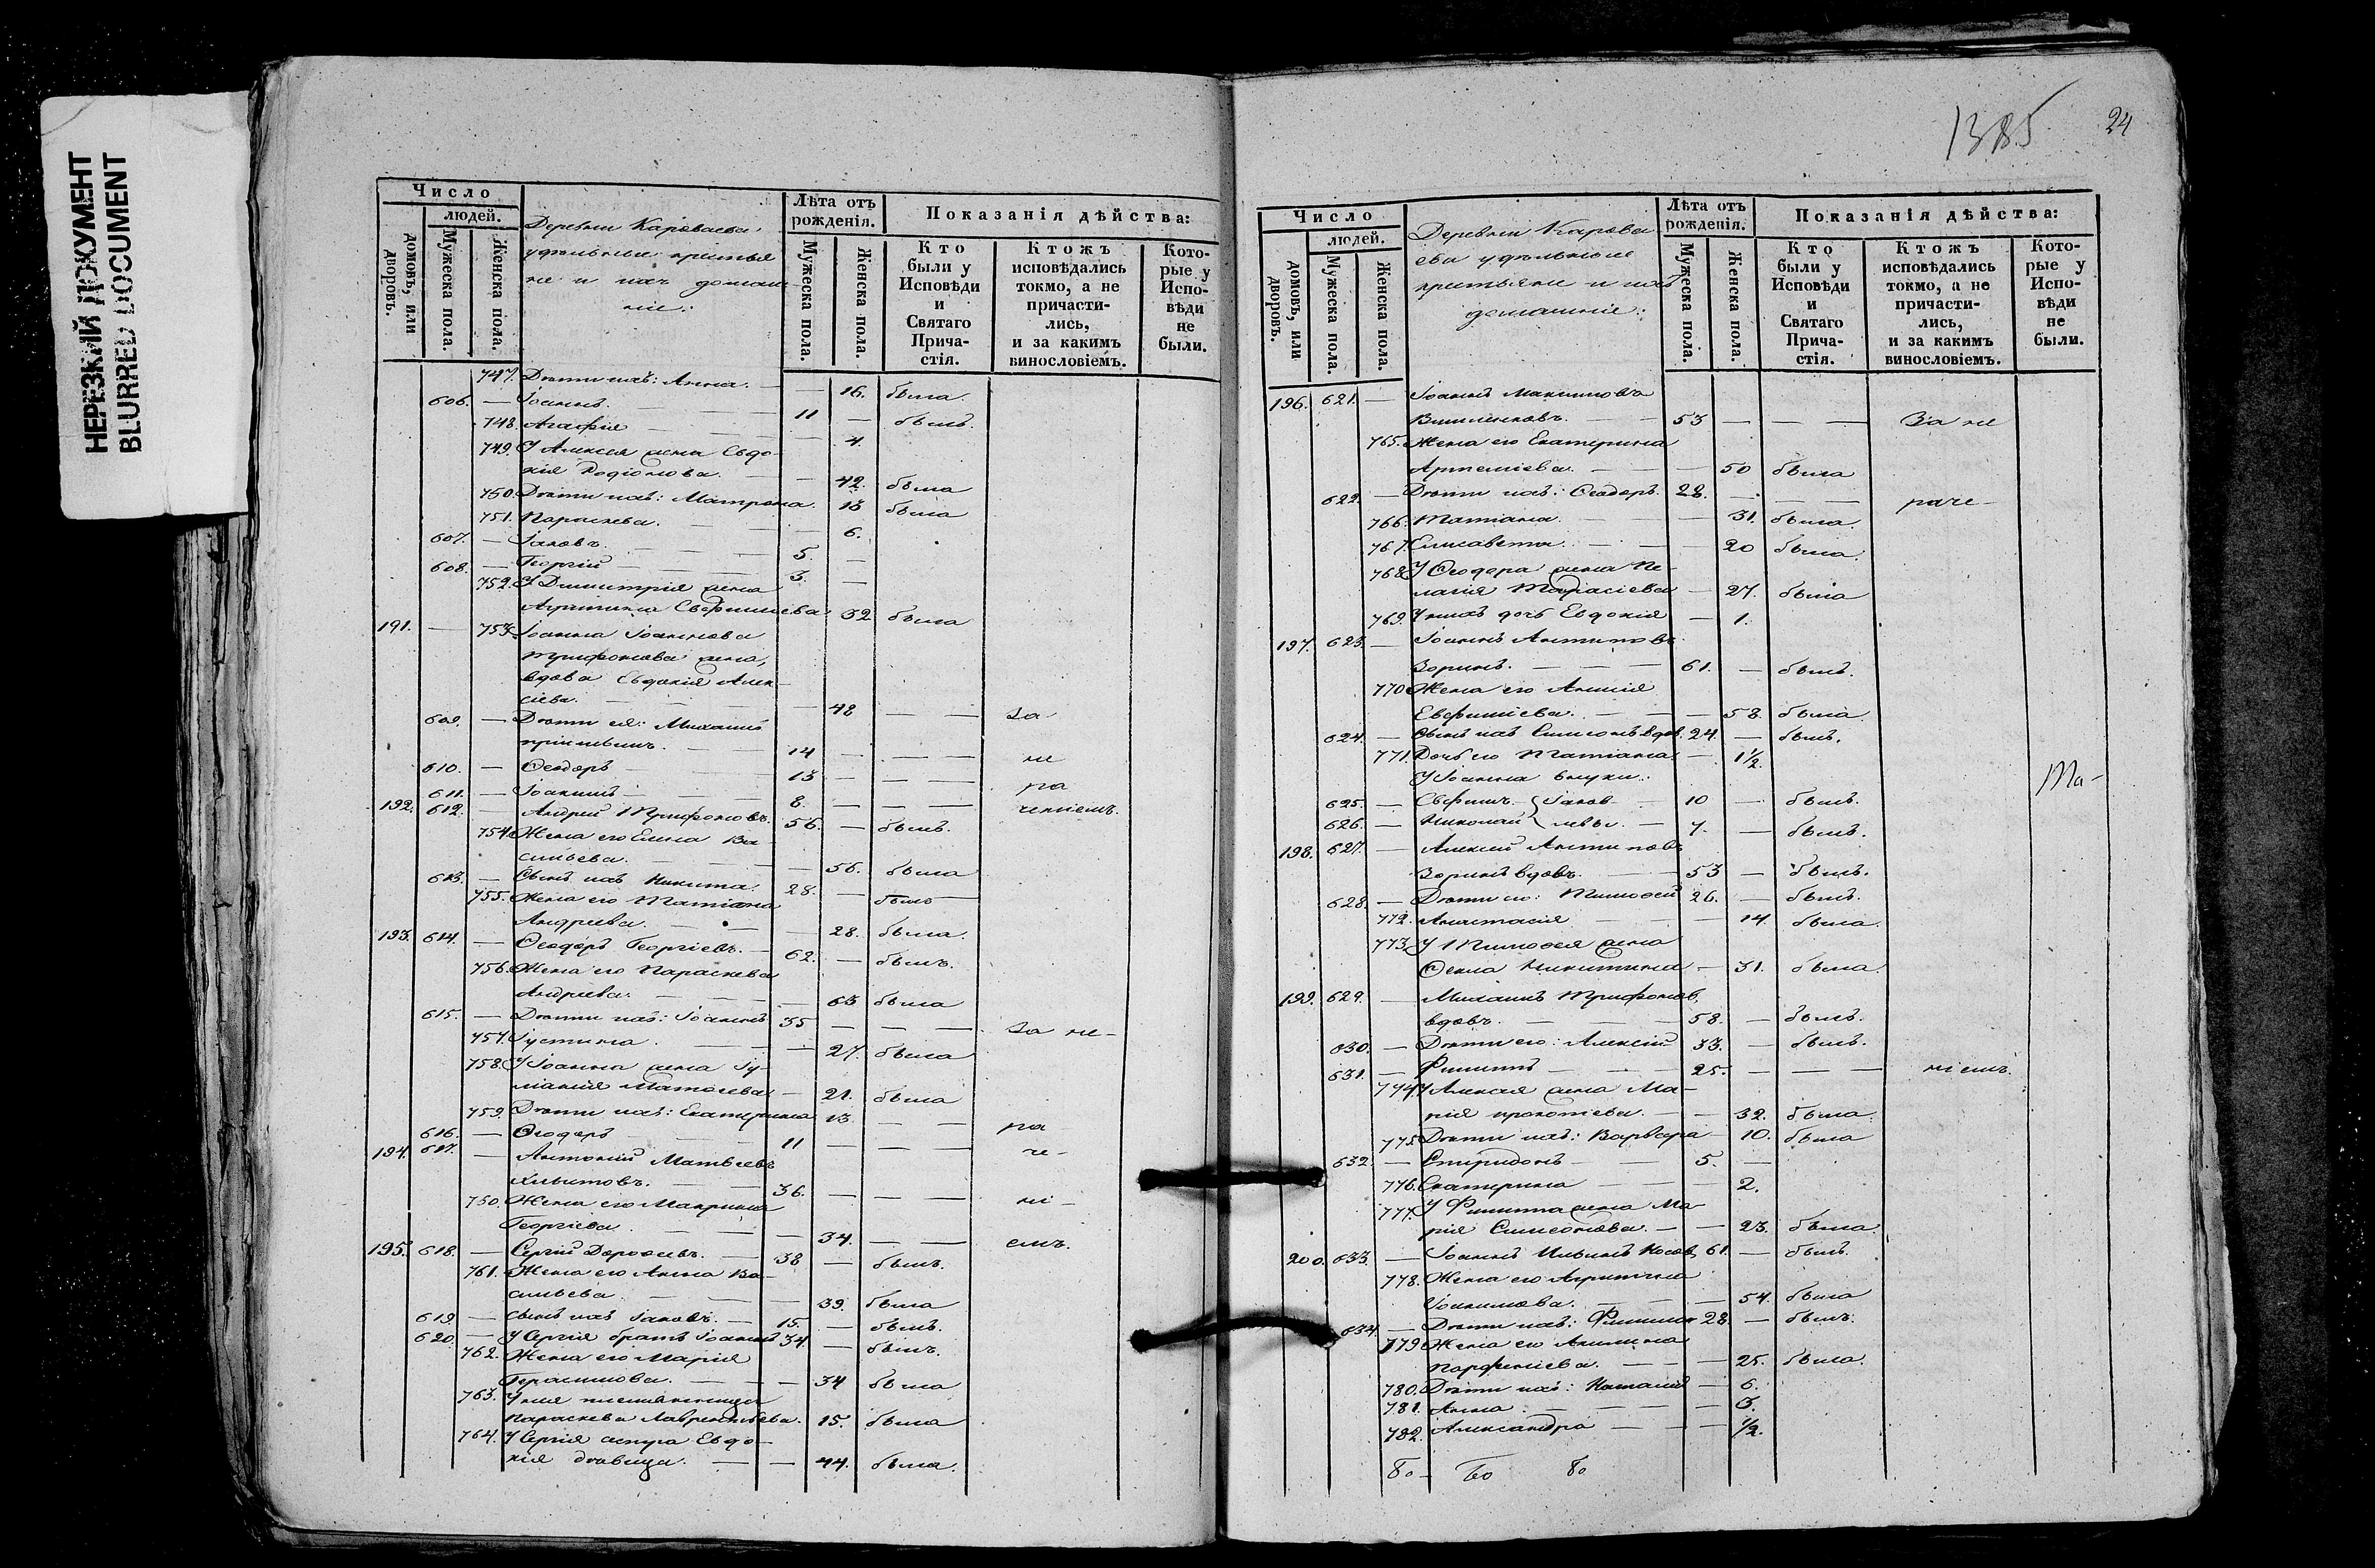 НЕРЕЗКИЙ ДОКУМЕНТ
BLURRED DOCUMENT
Число
людей.
домовъ, или дворовъ.
Мужеска пола.
Женска пола.
Деревни Караваева
удѣльные крестья
не и ихъ домаш-
ніе:
Лѣта отъ рожденія.
Мужеска пола.
Женска пола.
Показанія дѣйства:
Кто были у Исповѣди и Святаго Прича-стія.
Ктожъ исповѣдались токмо, а не причасти-лись, и за какимъ винословіемъ.
Кото-рые у Испо-вѣди не были.
747. Дѣти ихъ: Анна. — — 16. была.
606. — Іоаннъ. — — 11 — былъ.
748. Агафія — — — 4.
749. У Алексѣя жена Евдо-
кія Родіонова. — — 42. была
750. Дѣти ихъ: Матрона. 13 была
751. Параскева. — — — 6.
607. — Іаковъ. — — 5. —
608. — Георгій — — 3. —
752. У Димитрія жена
Агрипина Евфиміева 32 была
191. — 753. Іоанна Іоаннова
Трифонова жена,
вдова Евдокія Алек-
сіева. — — — 48 — — За
609. — Дѣти ея: Михаилъ
14 — — — не
610. — Ѳеодоръ — — 13 — — — ра
611. — Іоакимъ — — 8. — — — ченіемъ.
192. 612. — Андрей Трифоновъ. 56. — былъ.
754. Жена его Елена Ва-
сильева. — — — 56. была
613. — Сынъ ихъ Никита. 28. — былъ
755. Жена его Татіана
Андреева. — — — 28. была.
193. 614. — Ѳеодоръ Георгіевъ. — 62. — былъ.
756. Жена его Параскева
Андреева. — — — 63 была
615. — Дѣти ихъ: Іоаннъ 35 — — — За не-
757. Іустина. — — — 27. была
758. У Іоанна жена Іу-
ліанія Матѳеева — 21. была
759. Дѣти ихъ: Екатерина 13. — —
616. — Ѳеодоръ — — 11 — — — ра
194. 617. — Антоній Матвѣевъ че-
36. — — —
750. Жена его Макрина ні-
Георгіева. — — — 34. — — емъ.
195. 618. — Сергій Дороѳеевъ. — 38 — былъ.
761. Жена его Анна Ва-
сильева — — — 39. была
619. — Сынъ ихъ Іаковъ. — 15. — былъ.
620. — У Сергія братъ Іоаннъ 34. — былъ.
762. Жена его Марія
Герасимова. — — — 34 была
763. У нея племянница
Параскева Лаврентьева. 15. была
764. У Сергія сестра Евдо-
кія дѣвица. — — 44. была.
1385
24
Число
людей.
домовъ, или дворовъ.
Мужеска пола.
Женска пола.
Деревни Карава
ева удѣльные
крестьяне и ихъ
домашніе:
Лѣта отъ рожденія.
Мужеска пола.
Женска пола.
Показанія дѣйства:
Кто были у Исповѣди и Святаго Прича-стія.
Ктожъ исповѣдались токмо, а не причасти-лись, и за какимъ винословіемъ.
Кото-рые у Испо-вѣди не были.
196. 621. — Іоаннъ Максимовъ
53 — — — За не
765. Жена его Екатерина
Артеміева. — — — 50 была
622. — Дѣти ихъ: Ѳеодоръ. 28. — — — раче-
766. Татіана. — — — 31. была.
767. Елисавета. — — — 20 была.
768. У Ѳеодора жена Пе-
лагія Тарасіева — 27. была
769. У нихъ дочь Евдокія — 1.
197. 623. — Іоаннъ Антиповъ
Зоринъ. — — — 61. — былъ.
770 Жена его Анисія
Евфиміева. — — — 58. была.
624. — Сынъ ихъ Симеонъ вдов. 24. — былъ.
771. Дочь его Татіана. — 1½.
У Іоанна внуки:
625. — Евфимъ. } Іаков- — 10 — былъ.
626. — Николай } левы. — 7. — былъ.
Та-
198. 627. — Алексій Антиповъ
Зоринъ вдовъ. — 53 — былъ.
628. — Дѣти его: Тимоѳей 26. — былъ.
772. Анастасія — — — 14. была.
773. У Тимоѳея жена
Ѳекла Никитина — 31. была.
199. 629. — Михаилъ Трифонов,
вдовъ. — — — 58. — былъ.
630. — Дѣти его: Алексій — 33. — былъ.
631. — Филиппъ — — 25. — — — ніемъ.
774. У Алексія жена Ма-
рія Прокопіева. — — 32. была.
775. Дѣти ихъ: Варвара — 10. была
632. — Спиридонъ — — 5. —
776. Екатерина — — — 2.
777. У Филиппа жена Ма-
рія Симеонова. — — 23. была.
200. 633. — Іоаннъ Ильинъ Носов, 61. — былъ.
778. Жена его Агрипина
Іоакимова. — — — 54. была
634. — Дѣти ихъ: Филиппъ 28. — былъ.
779 Жена его Акилина
Парфеніева. — — — 25. была.
780. Дѣти ихъ: Наталія — 6.
781. Анна. — — — 3.
782. Александра — — — ½.